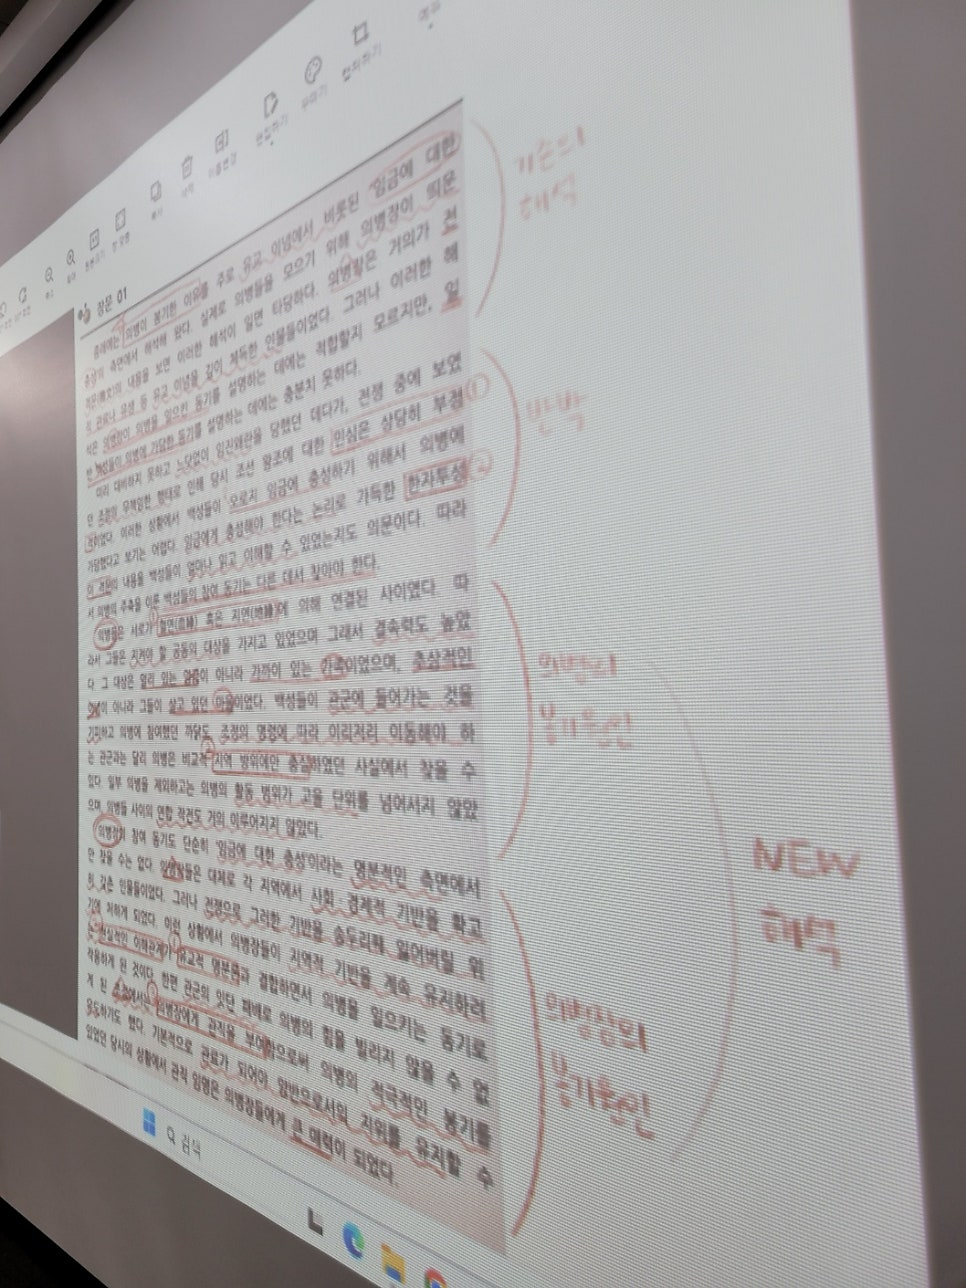 복사
삭제
이름변경
편집하기
꾸미기
캡처하기
장문 01
종래에는 의병이 봉기한 이유를 주로 유교 이념에서 비롯된 '임금에 대한
충성'의 측면에서 해석해 왔다. 실제로 의병들을 모으기 위해 의병장이 띄운
격문(檄文)의 내용을 보면 이러한 해석이 일면 타당하다. 의병장은 거의가 전
직 관료나 유생 등 유교 이념을 깊이 체득한 인물들이었다. 그러나 이러한 해
석은 의병장이 의병을 일으킨 동기를 설명하는 데에는 적합할지 모르지만, 일
반 백성들이 의병에 가담한 동기를 설명하는 데에는 충분치 못하다.
미리 대비하지 못하고 느닷없이 임진왜란을 당했던 데다가, 전쟁 중에 보였
던 조정의 무책임한 행태로 인해 당시 조선 왕조에 대한 민심은 상당히 부정
적이었다. 이러한 상황에서 백성들이 오로지 임금에 충성하기 위해서 의병에
가담했다고 보기는 어렵다. 임금에게 충성해야 한다는 논리로 가득한 한자투성
이 격문의 내용을 백성들이 얼마나 읽고 이해할 수 있었는지도 의문이다. 따라
서 의병의 주축을 이룬 백성들의 참여 동기는 다른 데서 찾아야 한다.
의병들은 서로가 혈연(血緣) 혹은 지연(地緣)에 의해 연결된 사이였다. 따
라서 그들은 지켜야 할 공동의 대상을 가지고 있었으며 그래서 결속력도 높았
다. 그 대상은 멀리 있는 임금이 아니라 가까이 있는 가족이었으며, 추상적인
이 아니라 그들이 살고 있던 마을이었다. 백성들이 관군에 들어가는 것을
기피하고 의병에 참여했던 까닭도, 조정의 명령에 따라 이리저리 이동해야 하
는 관군과는 달리 의병은 비교적 지역 방위에만 충실하였던 사실에서 찾을 수
있다. 일부 의병을 제외하고는 의병의 활동 범위가 고을 단위를 넘어서지 않았
으며, 의병들 사이의 연합 작전도 거의 이루어지지 않았다.
의병장의 참여 동기도 단순히 '임금에 대한 충성'이라는 명분적인 측면에서
만 찾을 수는 없다. 의병장들은 대체로 각 지역에서 사회·경제적 기반을 확고
히 갖춘 인물들이었다. 그러나 전쟁으로 그러한 기반을 송두리째 잃어버릴 위
기에 처하게 되었다. 이런 상황에서 의병장들이 지역적 기반을 계속 유지하려
는 현실적인 이해관계가 유교적 명분론과 결합하면서 의병을 일으키는 동기로
작용하게 된 것이다. 한편 관군의 잇단 패배로 의병의 힘을 빌리지 않을 수 없
게 된 조정에서는 의병장에게 관직을 부여함으로써 의병의 적극적인 봉기를
유도하기도 했다. 기본적으로 관료가 되어야 양반으로서의 지위를 유지할 수
있었던 당시의 상황에서 관직 임명은 의병장들에게 큰 매력이 되었다.
기존의
해석
①
반박
②
의병의
봉기원인
NEW
해석
의병장의
봉기원인
검색